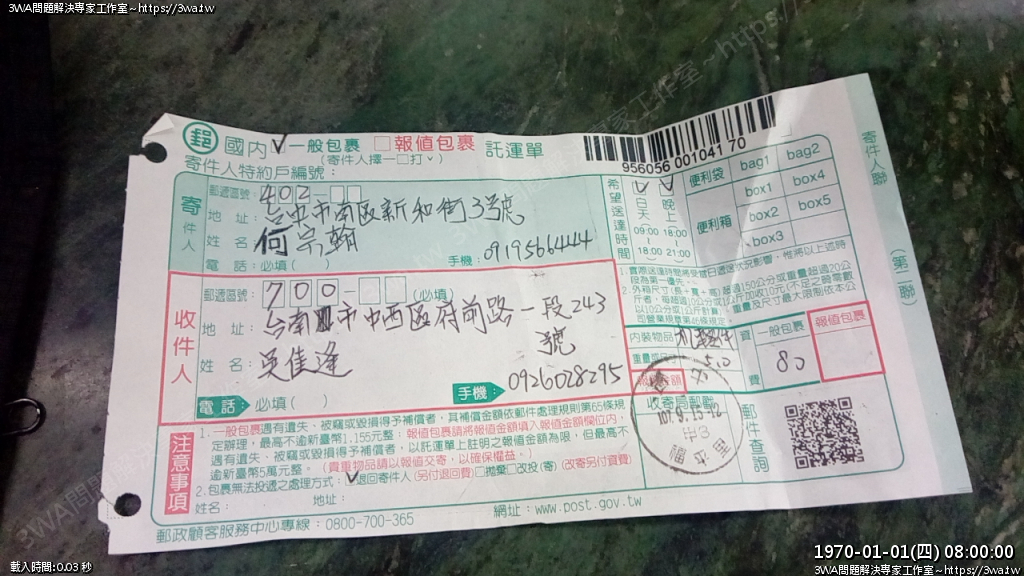 3WA問題解決專家工作室~https://3wa.tw
3WA問題解決專家工作室~https://3wa.tw
郵 國內 一般包裹 報值包裹 託運單
(寄件人擇一□打ˇ)
956056 001041 70
寄件人特約戶編號：
寄件人
郵遞區號：402-□□
地 址：台中市南區新和街3號
姓 名：何宗翰
電 話：必填( ) 手機：0919566444
希望送達時間
白天 09:00~18:00
晚上 18:00~21:00
便利袋 bag1 bag2
便利箱 box1 box4
box2 box5
box3
寄件人聯
(第二聯)
收件人
郵遞區號：700-□□(必填)
地 址：台南市中西區府前路一段243
號
姓 名：吳佳逢
手機：0926028295
電話：必填( )
內裝物品
5.0
資費
一般包裹
80
報值包裹
收寄局郵戳
107.9.13.12
郵件查詢
注意事項
1.一般包裹遇有遺失、被竊或毀損得予補償者，其補償金額依郵件處理規則第65條規
定辦理，最高不逾新臺幣1,155元整；報值包裹請將報值金額填入報值金額欄位內，
遇有遺失、被竊或毀損得予補償者，以託運單上註明之報值金額為限，但最高不
逾新臺幣5萬元整。(貴重物品請以報值交寄，以確保權益。)
2.包裹無法投遞之處理方式：退回寄件人(另付退回費)□拋棄□改投(寄)(改寄另付資費)
姓名： 地址：
郵政顧客服務中心專線：0800-700-365 網址：www.post.gov.tw
載入時間:0.03 秒
1970-01-01(四) 08:00:00
3WA問題解決專家工作室~https://3wa.tw